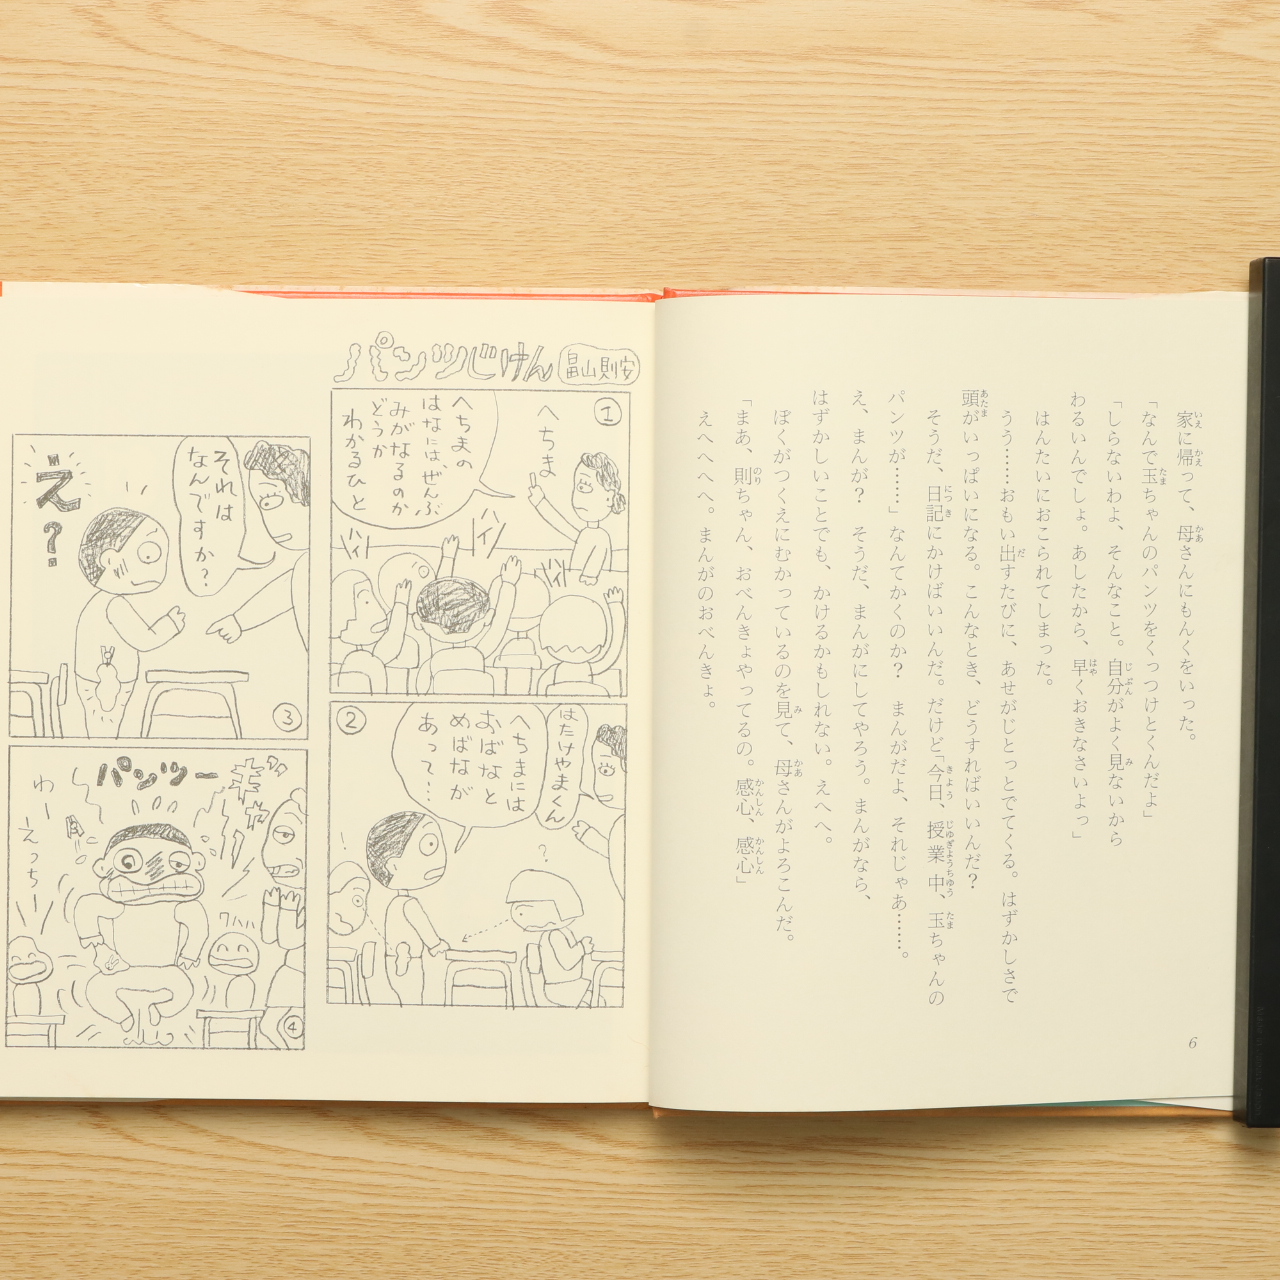 家に帰って、母さんにもんくをいった。
「なんで玉ちゃんのパンツをくっつけとくんだよ」
「しらないわよ、そんなこと。自分がよく見ないから
わるいんでしょ。あしたから、早くおきなさいよっ」
はんたいにおこられてしまった。
うう……おもい出すたびに、あせがじとっとでてくる。はずかしさで
頭がいっぱいになる。こんなとき、どうすればいいんだ?
そうだ、日記にかけばいいんだ。だけど「今日、授業中、玉ちゃんの
パンツが……」なんてかくのか? まんがだよ、それじゃあ……。
え、まんが? そうだ、まんがにしてやろう。まんがなら、
はずかしいことでも、かけるかもしれない。えへへ。
ぼくがつくえにむかっているのを見て、母さんがよろこんだ。
「まあ、則ちゃん、おべんきょやってるの。感心、感心」
えへへへへ。まんがのおべんきょ。
6
パンツじけん
畠山則安
1
へちま
へちまの
はなには、ぜんぶ
みがなるのか
どうか
わかるひと
ハイ
ハイ
ハイ
2
はたけやまくん
へちまには
おばなと
めばなが
あって…
?
!
3
それは
なんですか?
え?
4
パンツー
ギャ
わー
えっちー
ワハハ